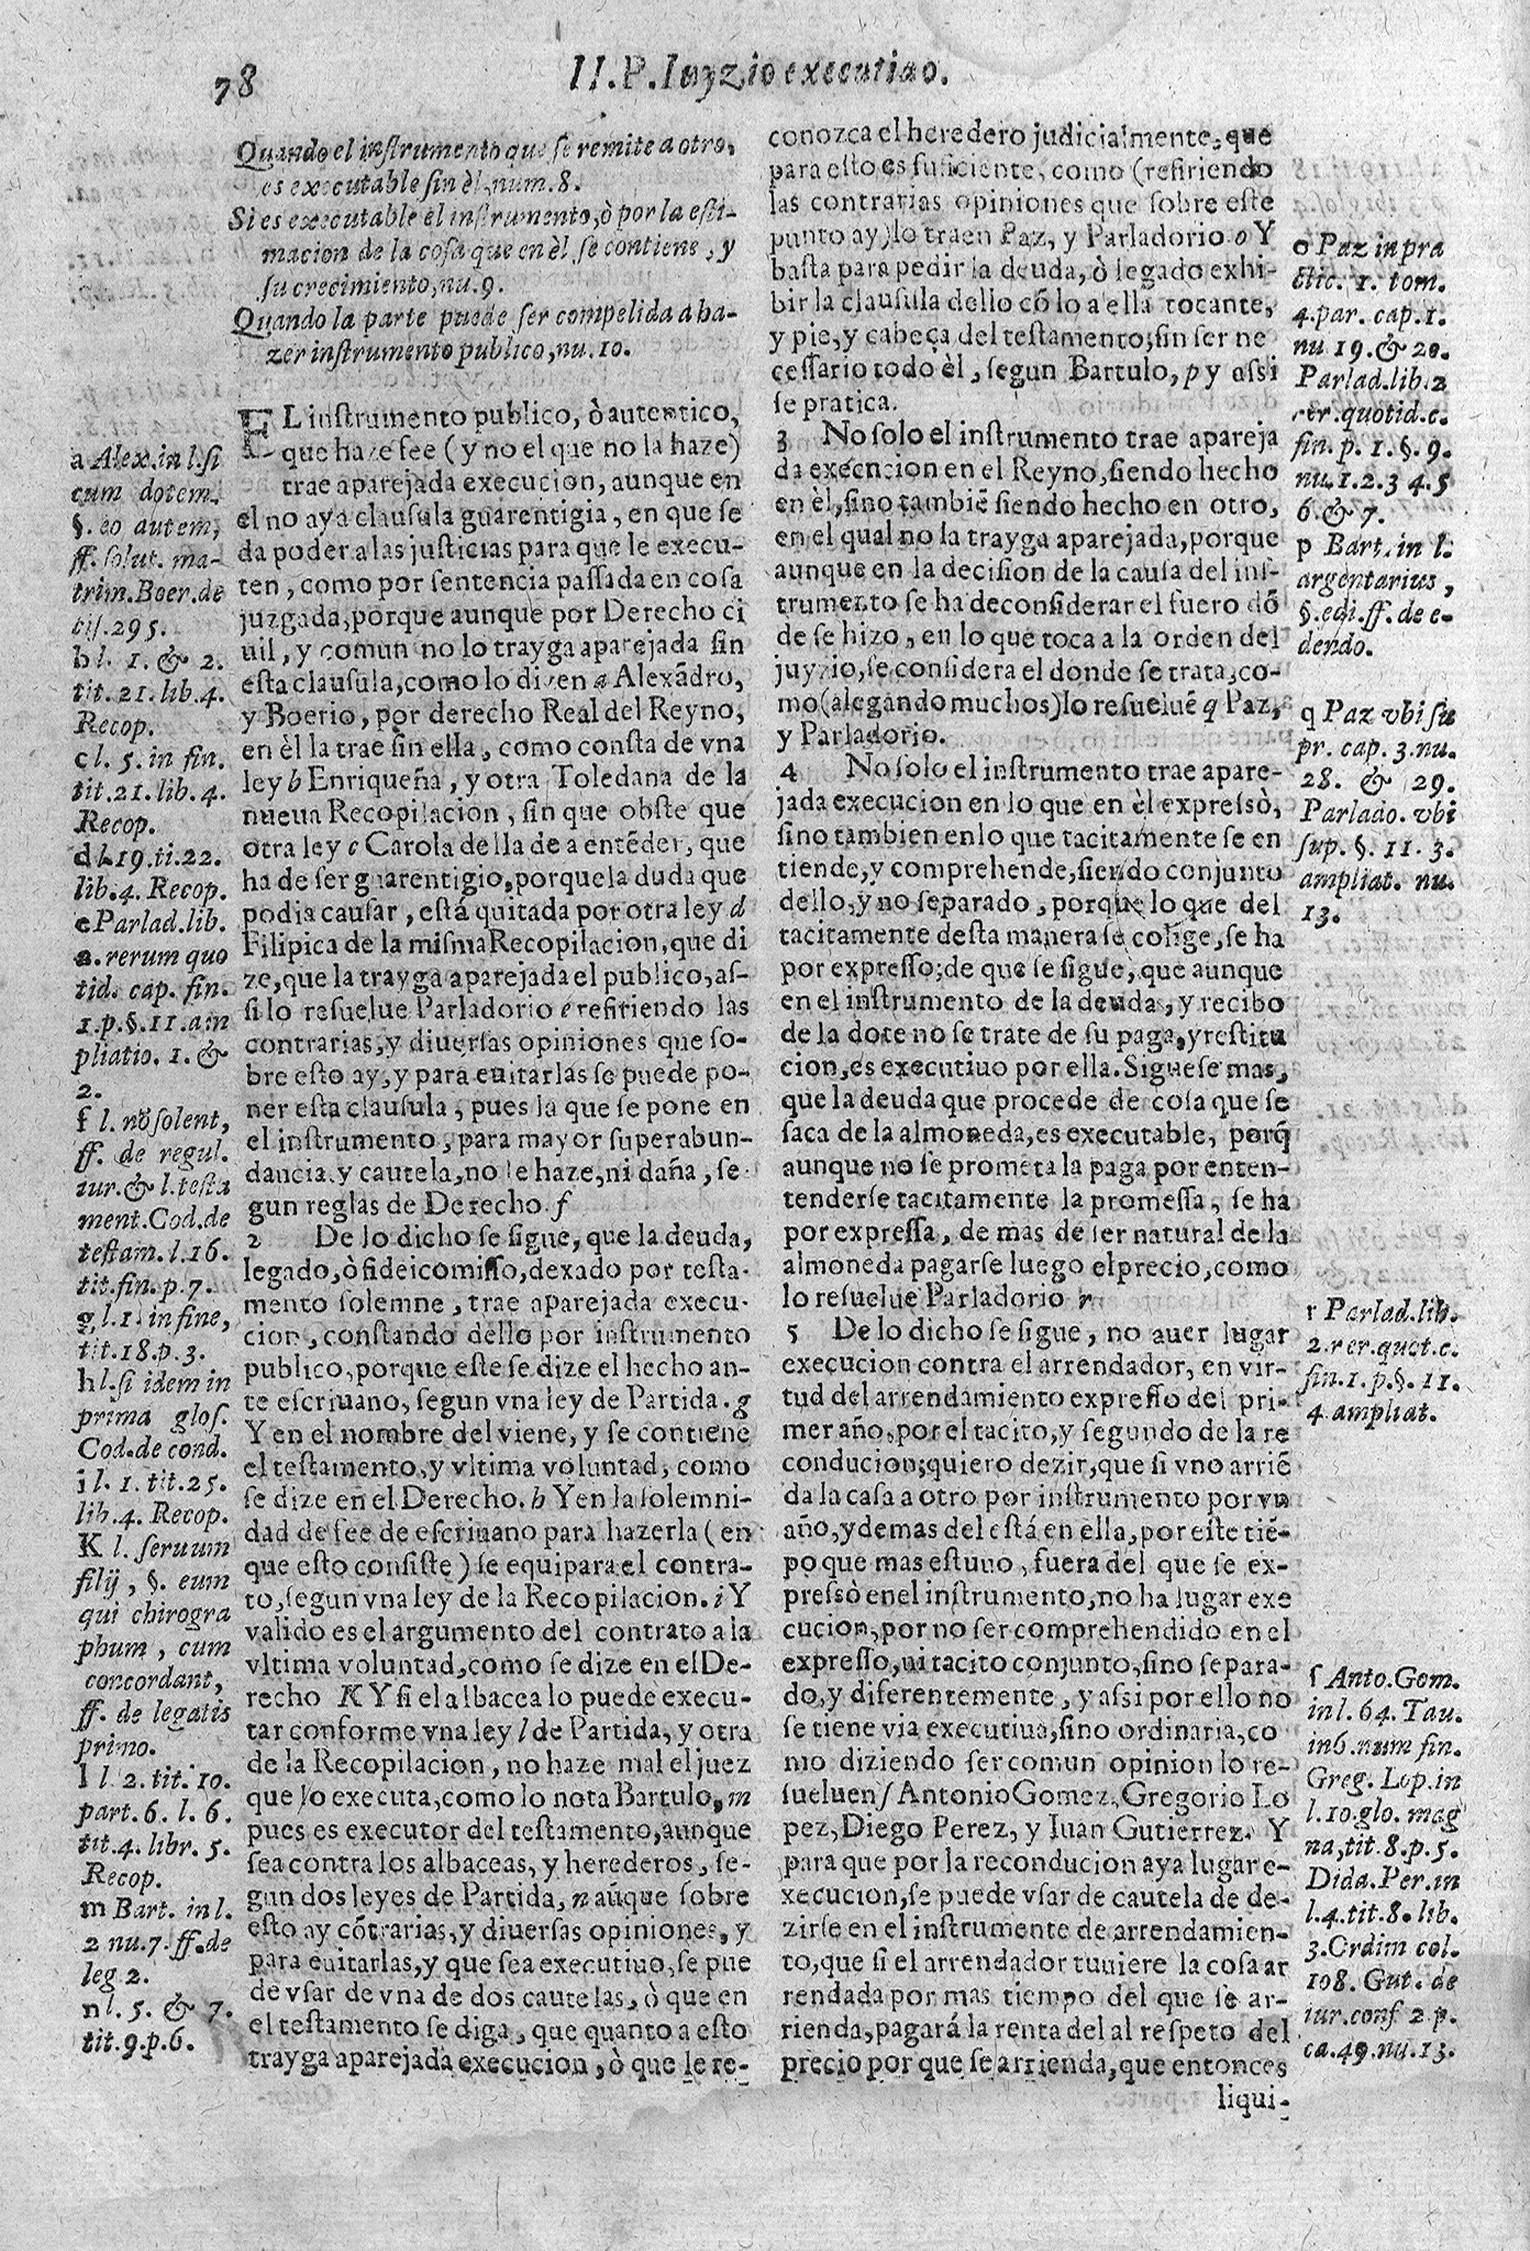 78
II.P.Iuyzio executiuo.
Quando el instrumento que se remite a otro,
es executable sin èl, num.8.
Si es executable el instrumento, ò por la esti-
macion de la cosa que en èl se contiene, y
su crecimiento, nu.9.
Quando la parte puede ser compelida a ha-
zer instrumento publico, nu.10.
EL instrumento publico, ò autentico,
que haze fee (y no el que no la haze)
trae aparejada execucion, aunque en
el no aya clausula guarentigia, en que se
da poder a las justicias para que le execu-
ten, como por sentencia passada en cosa
juzgada, porque aunque por Derecho ci
uil, y comun no lo trayga aparejada sin
esta clausula, como lo dizen a Alexãdro,
y Boerio, por derecho Real del Reyno,
en èl la trae sin ella, como consta de vna
ley b Enriqueña, y otra Toledana de la
nueua Recopilacion, sin que obste que
otra ley c Carola della de a entẽder, que
ha de ser guarentigio, porque la duda que
podia causar, está quitada por otra ley d
Filipica de la misma Recopilacion, que di
ze, que la trayga aparejada el publico, as-
si lo resuelue Parladorio e refiriendo las
contrarias, y diuersas opiniones que so-
bre esto ay, y para euitarlas se puede po-
ner esta clausula, pues la que se pone en
el instrumento, para mayor superabun-
dancia y cautela, no le haze, ni daña, se-
gun reglas de Derecho. f
2 De lo dicho se sigue, que la deuda,
legado, ò fideicomisso, dexado por testa-
mento solemne, trae aparejada execu-
cion, constando dello por instrumento
publico, porque este se dize el hecho an-
te escriuano, segun vna ley de Partida. g
Y en el nombre del viene, y se contiene
el testamento, y vltima voluntad, como
se dize en el Derecho. h Y en la solemni-
dad de fee de escriuano para hazerla (en
que esto consiste) se equipara el contra-
to, segun vna ley de la Recopilacion. i Y
valido es el argumento del contrato a la
vltima voluntad, como se dize en el De-
recho K Y si el albacea lo puede execu-
tar conforme vna ley l de Partida, y otra
de la Recopilacion, no haze mal el juez
que lo executa, como lo nota Bartulo, m
pues es executor del testamento, aunque
sea contra los albaceas, y herederos, se-
gun dos leyes de Partida, n aũque sobre
esto ay cõtrarias, y diuersas opiniones, y
para euitarlas, y que sea executiuo, se pue
de vsar de vna de dos cautelas, ò que en
el testamento se diga, que quanto a esto
trayga aparejada execucion, ò que le re-
a Alex. in l. si
cum dotem.
§. eo autem,
ff. solut. ma-
trim. Boer. de
cis. 295.
b l. 1. & 2.
tit. 21. lib. 4.
Recop.
c l. 5. in fin.
tit. 21. lib. 4.
Recop.
d l. 19. ti. 22.
lib. 4. Recop.
e Parlad. lib.
2. rerum quo
tid. cap. fin.
1. p. §. 11. am
pliatio. 1. &
2.
f l. nõ solent,
ff. de regul.
iur. & l. testa
ment. Cod. de
testam. l. 16.
tit. fin. p. 7.
g l. 1. in fine,
tit. 18. p. 3.
h l. si idem in
prima glos.
Cod. de cond.
i l. 1. tit. 25.
lib. 4. Recop.
K l. seruum
filij, §. eum
qui chirogra
phum, cum
concordant,
ff. de legatis
primo.
l l. 2. tit. 10.
part. 6. l. 6.
tit. 4. libr. 5.
Recop.
m Bart. in l.
2 nu. 7. ff. de
leg 2.
n l. 5. & 7.
tit. 9. p. 6.
conozca el heredero judicialmente, que
para esto es suficiente, como (refiriendo
las contrarias opiniones que sobre este
punto ay) lo traen Paz, y Parladorio o Y
basta para pedir la deuda, ò legado exhi-
bir la clausula dello cõ lo a ella tocante,
y pie, y cabeça del testamento, sin ser ne
cessario todo èl, segun Bartulo, p y assi
se pratica.
3 No solo el instrumento trae apareja
da execucion en el Reyno, siendo hecho
en èl, sino tambiẽ siendo hecho en otro,
en el qual no la trayga aparejada, porque
aunque en la decision de la causa del ins-
trumento se ha de considerar el fuero dõ
de se hizo, en lo que toca a la orden del
juyzio, se considera el donde se trata, co-
mo (alegando muchos) lo resueluẽ q Paz,
y Parladorio.
4 No solo el instrumento trae apare-
jada execucion en lo que en èl expressò,
sino tambien en lo que tacitamente se en
tiende, y comprehende, siendo conjunto
dello, y no separado, porque lo que del
tacitamente desta manera se colige, se ha
por expresso; de que se sigue, que aunque
en el instrumento de la deuda, y recibo
de la dote no se trate de su paga, y restitu
cion, es executiuo por ella. Siguese mas,
que la deuda que procede de cosa que se
saca de la almoneda, es executable, porq̃
aunque no se prometa la paga por enten-
tenderse tacitamente la promessa, se ha
por expressa, de mas de ser natural de la
almoneda pagarse luego el precio, como
lo resuelue Parladorio r
5 De lo dicho se sigue, no auer lugar
execucion contra el arrendador, en vir-
tud del arrendamiento expresso del pri-
mer año, por el tacito, y segundo de la re
conducion; quiero dezir, que si vno arriẽ
da la casa a otro por instrumento por vn
año, y demas del está en ella, por este tiẽ-
po que mas estuuo, fuera del que se ex-
pressò en el instrumento, no ha lugar exe
cucion, por no ser comprehendido en el
expresso, ni tacito conjunto, sino separa-
do, y diferentemente, y assi por ello no
se tiene via executiua, sino ordinaria, co
mo diziendo ser comun opinion lo re-
sueluen s Antonio Gomez, Gregorio Lo
pez, Diego Perez, y Iuan Gutierrez. Y
para que por la reconducion aya lugar e-
xecucion, se puede vsar de cautela de de-
zirse en el instrumente de arrendamien-
to, que si el arrendador tuuiere la cosa ar
rendada por mas tiempo del que se ar-
rienda, pagará la renta del al respeto del
precio por que se arrienda, que entonces
liqui-
o Paz in pra
ctic. 1. tom.
4. par. cap. 1.
nu 19. & 20.
Parlad. lib. 2
rer. quotid. c.
fin. p. 1. §. 9.
nu. 1. 2. 3 4. 5
6. & 7.
p Bart. in l.
argentarius,
§. edi. ff. de e-
dendo.
q Paz vbi su
pr. cap. 3. nu.
28. & 29.
Parlado. vbi
sup. §. 11. 3.
ampliat. nu.
13.
r Parlad. lib.
2. rer. quot. c.
fin. 1. p. §. 11.
4. ampliat.
s Anto. Gom.
in l. 64. Tau.
in 6. num fin.
Greg. Lop. in
l. 10. glo. mag
na, tit. 8. p. 5.
Dida. Per. in
l. 4. tit. 8. lib.
3. Ordim col.
108. Gut. de
iur. conf. 2 p.
ca. 49. nu. 13.